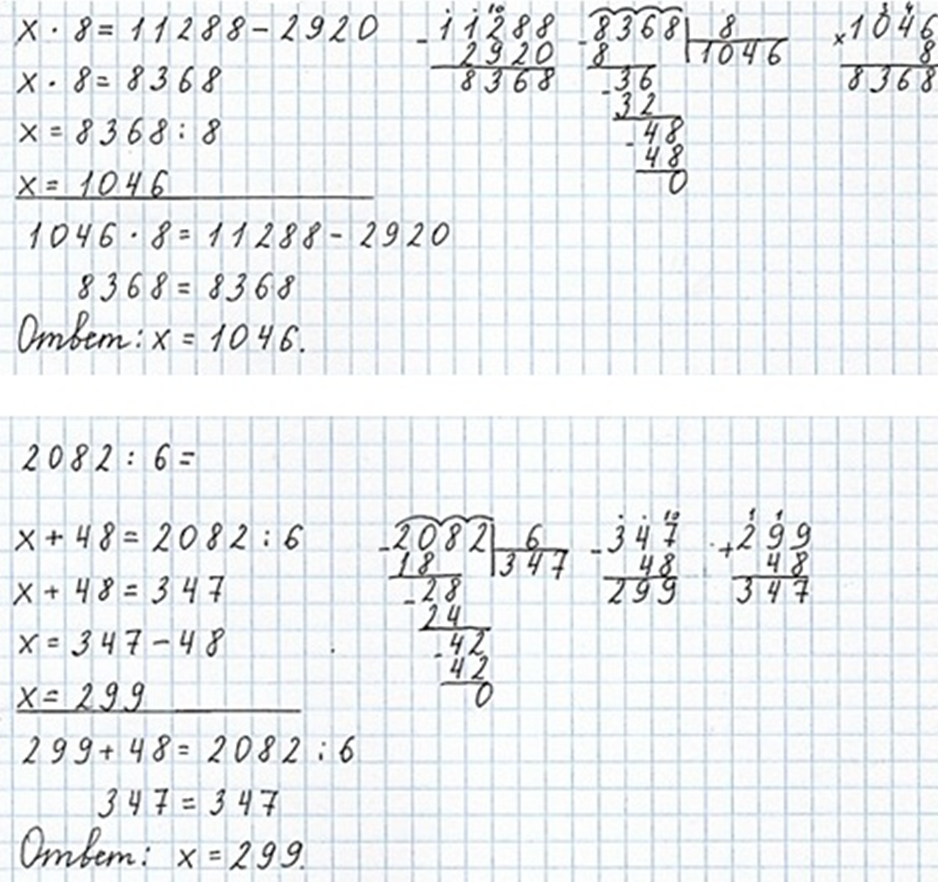 x · 8 = 11288 - 2920
x · 8 = 8368
x = 8368 : 8
x = 1046
1046 · 8 = 11288 - 2920
8368 = 8368
Ответ: x = 1046.
10
- 11288
2920
8368
- 8368 | 8
8 1046
- 36
32
- 48
48
0
3 4
x 1046
8
8368
2082 : 6 =
x + 48 = 2082 : 6
x + 48 = 347
x = 347 - 48
x = 299
299 + 48 = 2082 : 6
347 = 347
Ответ: x = 299.
- 2082 | 6
18 347
- 28
24
- 42
42
0
10
- 347
48
299
1 1
+ 299
48
347